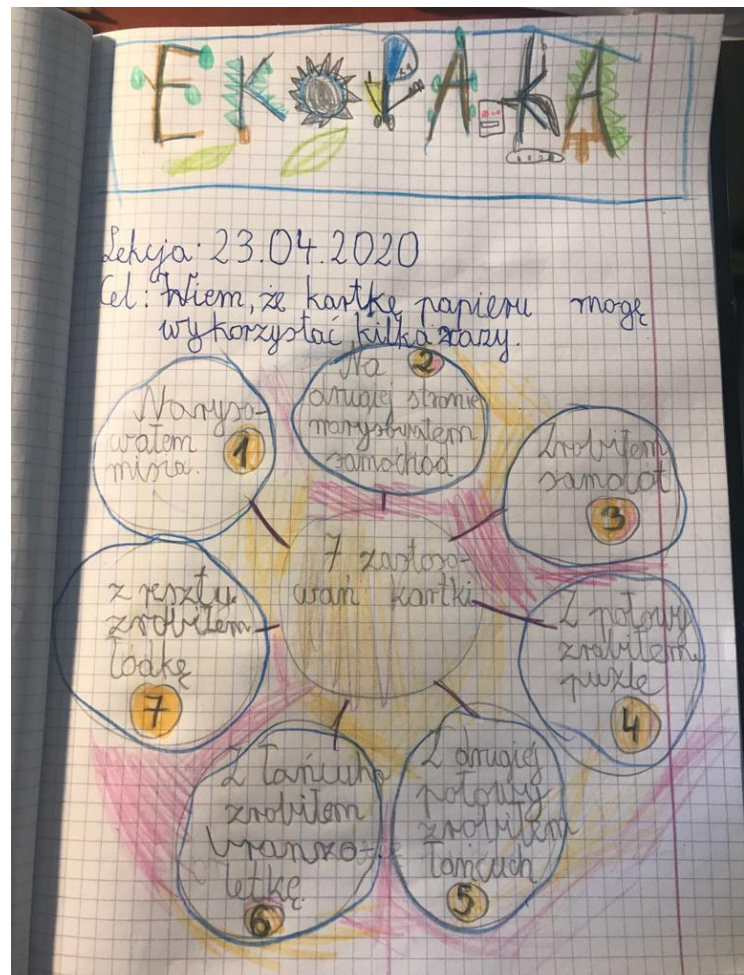 EKOPAKA
Lekcja: 23.04.2020
Cel: Wiem, że kartkę papieru mogę
wykorzystać kilka razy.
Naryso-
wałem
misia. 1
Na 2
drugiej stronie
narysowałem
samochód
Zrobiłem
samolot
3
Z połowy
zrobiłem
puzle
4
Z drugiej
połowy
zrobiłem
łańcuch
5
Z łańcucha
zrobiłem
branzo-
letkę
6
z reszty
zrobiłem
łódkę
7
7 zastoso-
wań kartki